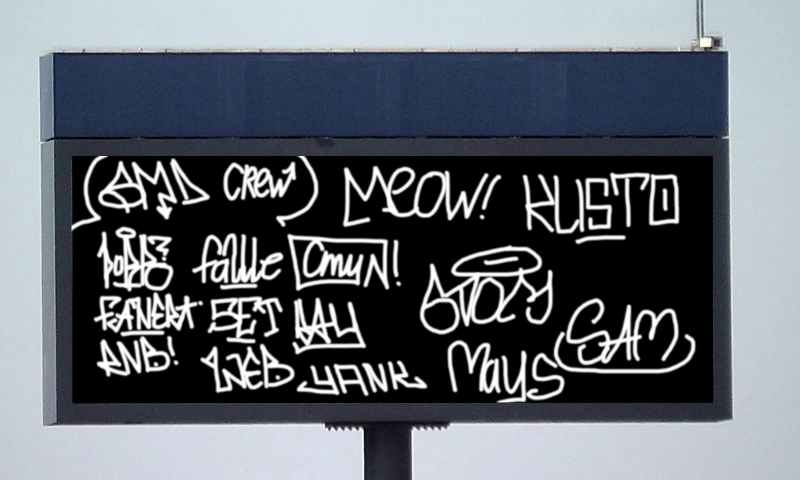 CREW
MEOW!
KUSTO
falle
CmyN!
FANERA
SET
RNB!
WEB
YANK
Mays
SAM